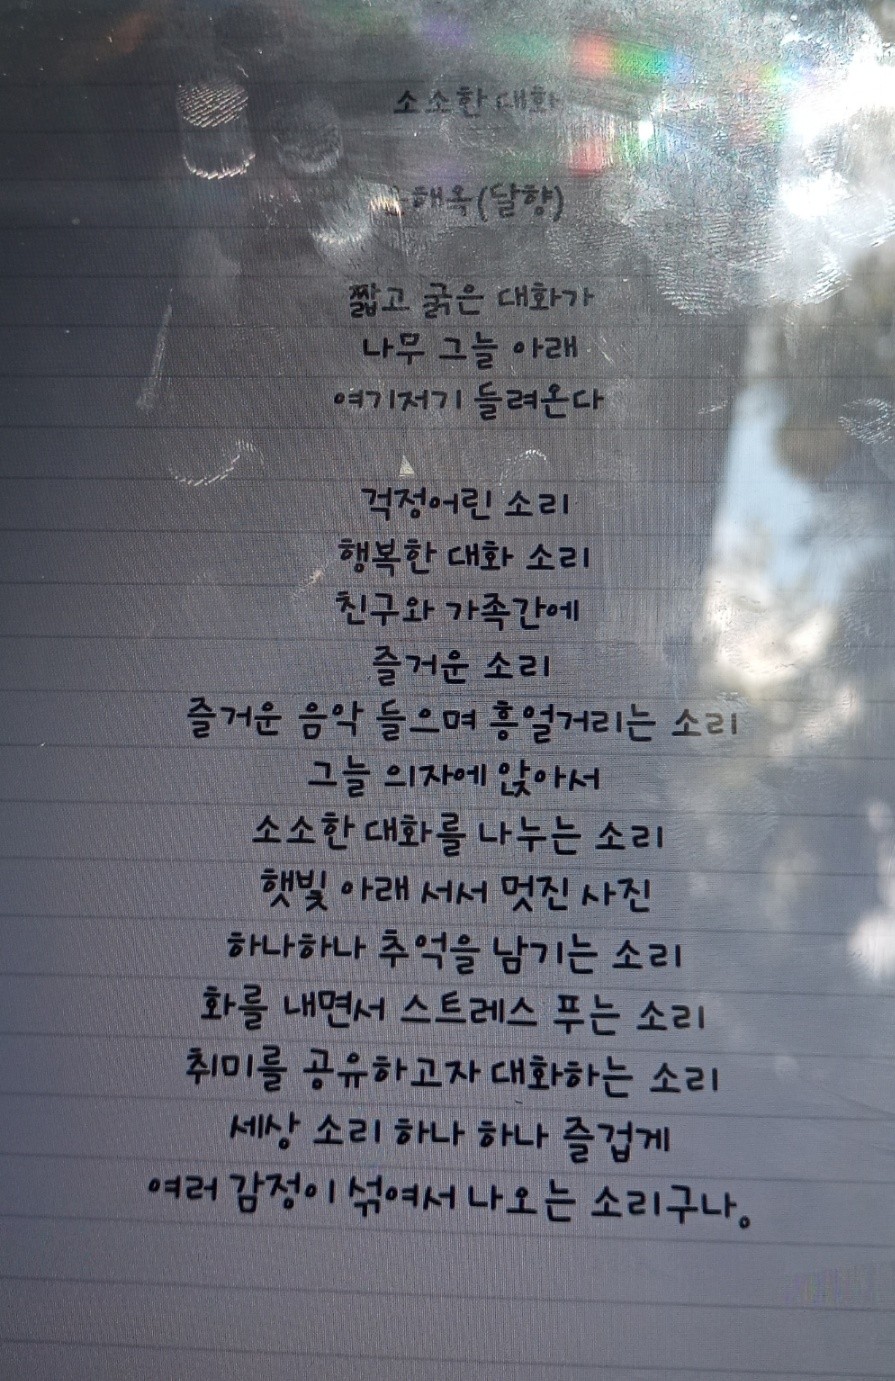 소소한 대화
해옥(달향)
짧고 굵은 대화가
나무 그늘 아래
여기저기 들려온다
걱정어린 소리
행복한 대화 소리
친구와 가족간에
즐거운 소리
즐거운 음악 들으며 흥얼거리는 소리
그늘 의자에 앉아서
소소한 대화를 나누는 소리
햇빛 아래 서서 멋진 사진
하나하나 추억을 남기는 소리
화를 내면서 스트레스 푸는 소리
취미를 공유하고자 대화하는 소리
세상 소리 하나 하나 즐겁게
여러 감정이 섞여서 나오는 소리구나。